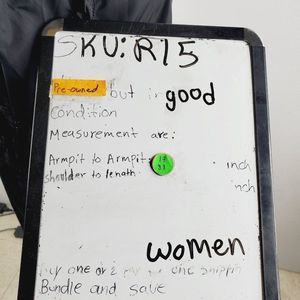 SKU: R15
Pre-owned but in good
Condition
Measurement are:
Armpit to Armpit: 17 inch
shoulder to length: 31 inch
women
buy one or 2 one shippin
Bundle and save